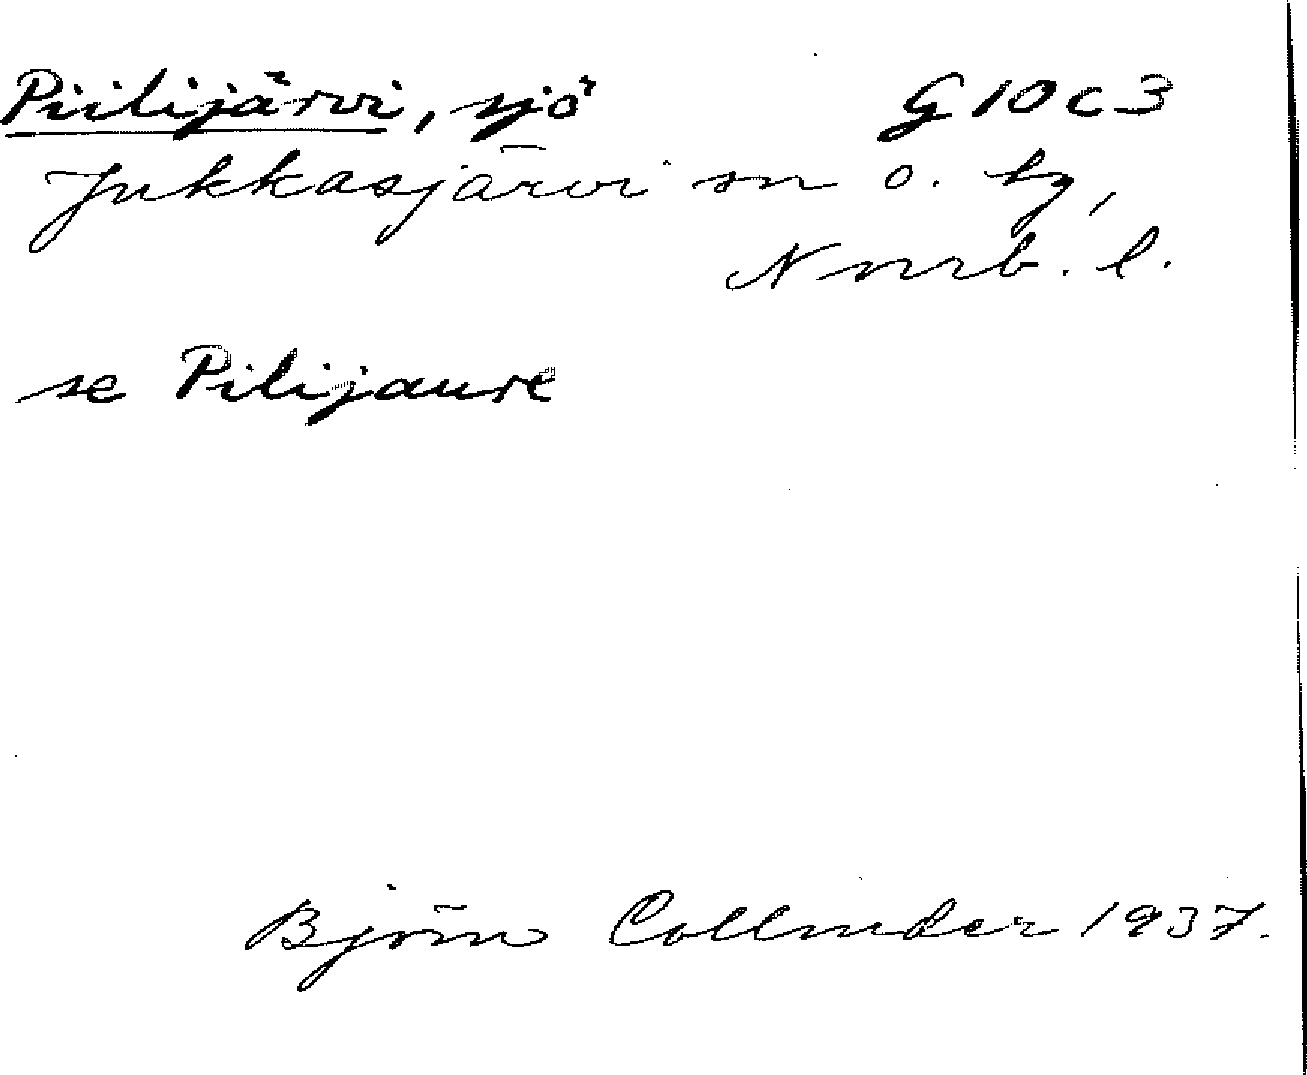 Piilijärvi, sjö G10c3
Jukkasjärvi sn o. tg,
Norrb. l.
se Pilijaure
Björn Collinder 1937.